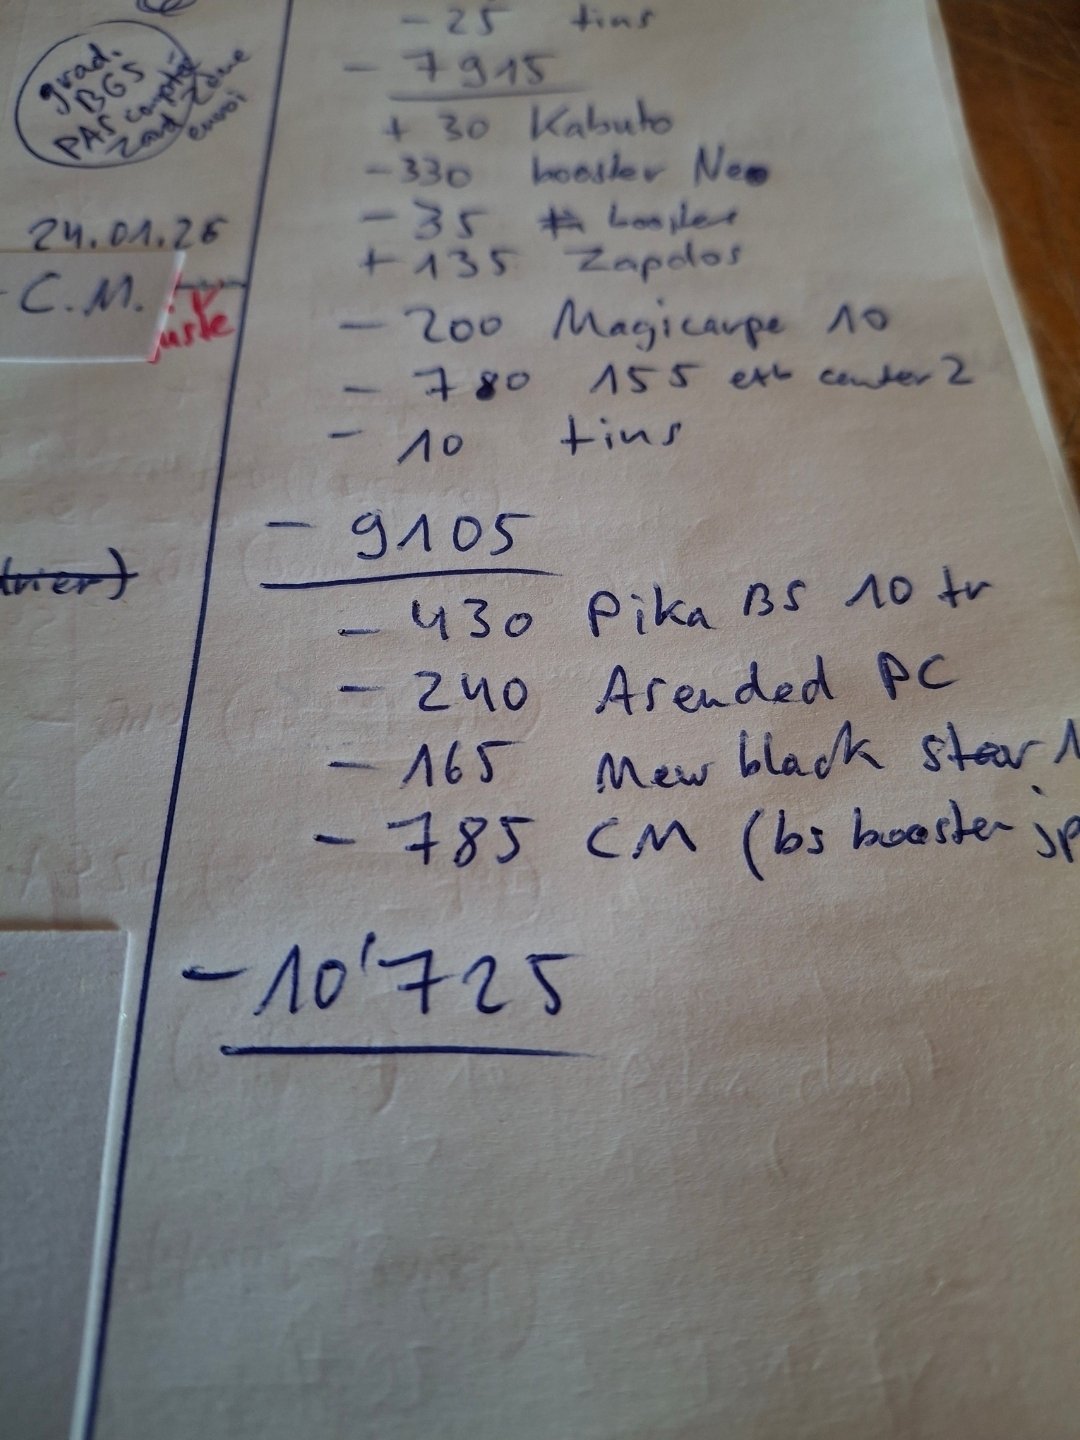 grad.
BGS
PAS compté
2nd Zone
envoi
24.01.26
- C.M.
juste
- 25 tins
- 7915
+ 30 Kabuto
- 330 booster Neo
- 35 booster
+ 135 Zapdos
- 200 Magicarpe 10
- 780 155 etb center 2
- 10 tins
- 9105
- 430 Pika BS 10 tr
- 240 Asended PC
- 165 Mew black star 1
- 785 CM (bs booster jp
- 10'725